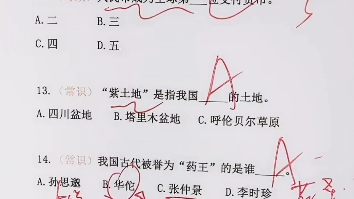 人民币成为全球第___位支付货币。
A.二 B.三
C.四 D.五
13.(常识)“紫土地”是指我国___的土地。
A
A.四川盆地 B.塔里木盆地 C.呼伦贝尔草原
14.(常识)我国古代被誉为“药王”的是谁___。
A
A.孙思邈 B.华佗 C.张仲景 D.李时珍